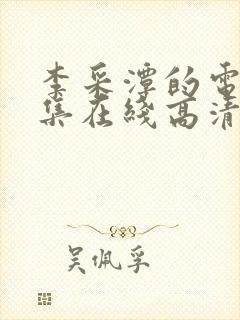 李采潭的電
集在綫高清
吳佩孚